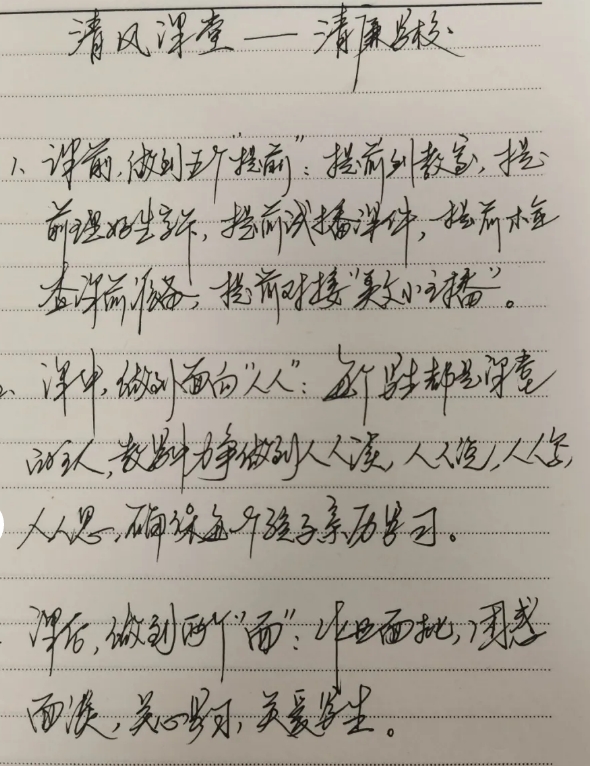 清风课堂——清廉学校
1、课前,做到五个“提前”:提前到教室,提
前理好生字,提前试播课件,提前检
查课前准备,提前对接“美文小主播”。
2、课中,做到面向“人人”:每个学生都是课堂
的主人,教学中力争做到人人读,人人说,人人写,
人人思,确保每一个孩子亲历学习。
课后,做到两个“面”:作业面批,困惑
面谈,关心学习,关爱学生。